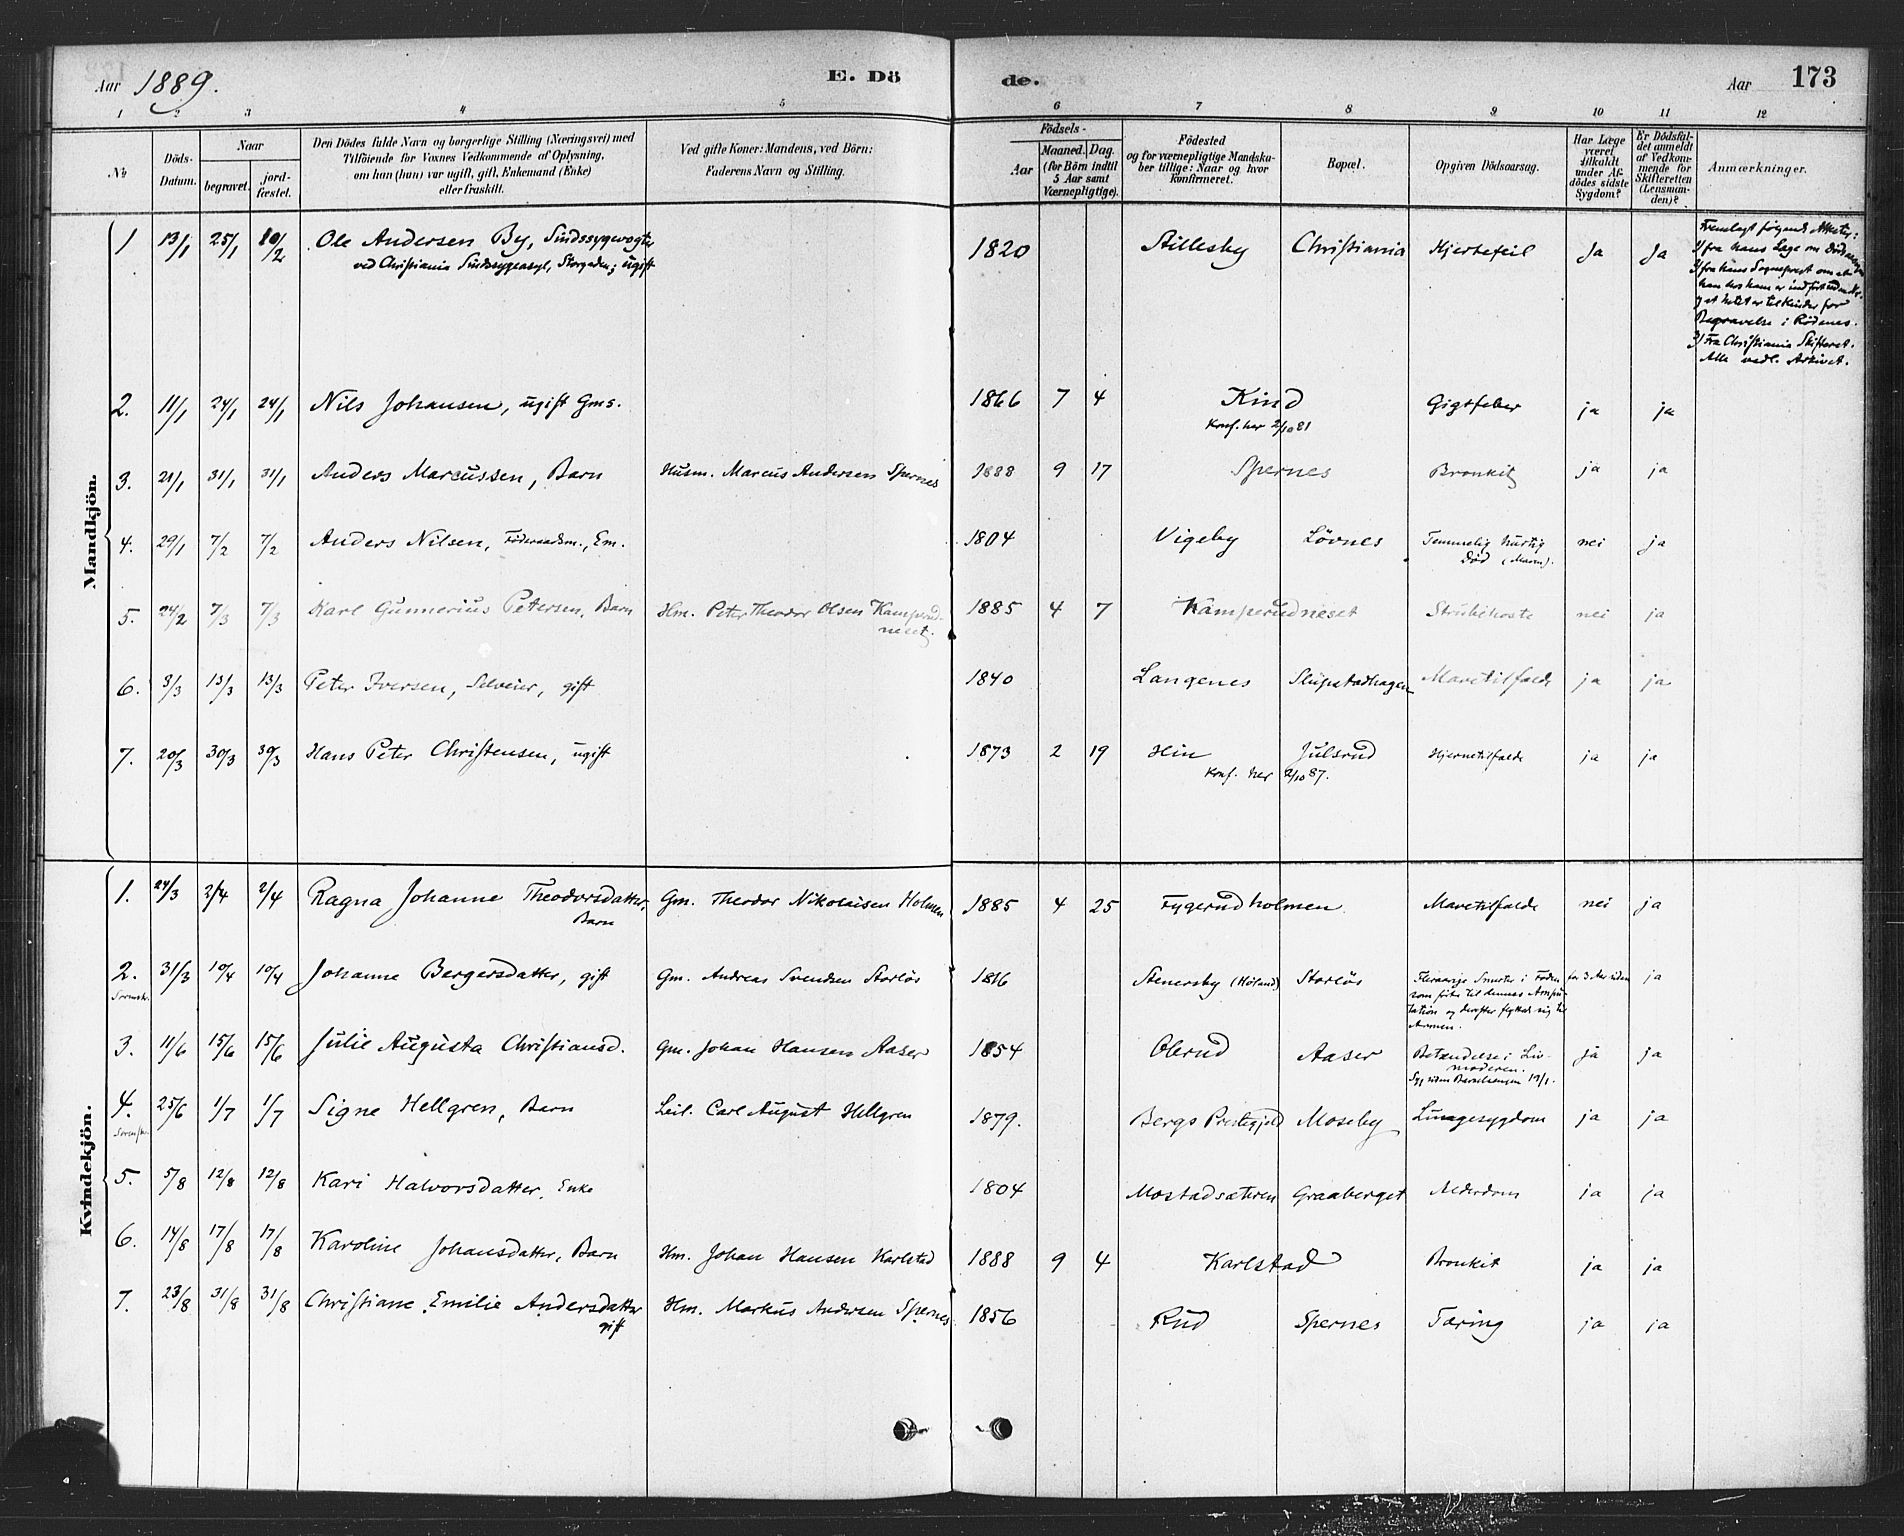 Aar 1889. E. Dö de. Aar 173
1 2 3 4 5 6 7 8 9 10 11 12
No
Döds-Datum.
Naar
begravet. jordfæstet.
Den Dödes fulde Navn og borgerlige Stilling (Næringsvei) med
Tilföiende for Voxnes Vedkommende af Oplysning,
om han (hun) var ugift, gift, Enkemand (Enke)
eller fraskilt.
Ved gifte Koner: Mandens, ved Börn:
Faderens Navn og Stilling.
Födsels-
Aar
Maaned. Dag.
(for Börn indtil
5 Aar samt
Værnepligtige).
Födested
og for værnepligtige Mandskaber tillige: Naar og hvor
konfirmeret.
Bopæl.
Opgiven Dödsaarsag.
Har Læge
været
tilkaldt
under Afdödes sidste
Sygdom?
Er Dödsfaldet anmeldt
af Vedkommende for
Skifteretten
(Lensmanden)?
Anmærkninger.
Mandkjön.
1 13/1 25/1 10/2 Ole Andersen By, Sindssygevogter 1820 Aillesby Christiania Hjertefeil Ja Ja
ved Christiania Sindssygeasyl, Storgaden; ugift
Fremlagt følgende Attester:
1) fra hans Læge om Dødsaarsagen
2) fra hans Sogneprest om at
han hos ham er indført under No.
Begravelse i Rødenes.
3) Fra Christiania Skifteret.
Alle vedl. Arkivet.
2. 11/1 24/1 24/1 Nils Johansen, ugift Gms. 1866 7 4 Kind Gigtfeber ja ja
Konf. her 2/10 81
3. 21/1 31/1 31/1 Anders Marcussen, Barn Husm. Marcus Andersen Spernes 1888 9 17 Spernes Bronkit ja ja
4. 29/1 7/2 7/2 Anders Nilsen, Føderaadsm., Em. 1804 Vigeby Løvnes Temmelig hurtig nei ja
Død (Maven).
5. 24/2 7/3 7/3 Karl Gunnerius Petersen, Barn Hm. Peter Theodor Olsen Kamperudneset. 1885 4 7 Kamperudneset Strubehoste nei ja
6. 3/3 13/3 13/3 Peter Iversen, Selveier, gift 1840 Langenes Slupstadhagen Mavetilfælde ja ja
7. 20/3 30/3 30/3 Hans Peter Christensen, ugift 1873 2 19 Hin Julsrud Hjernetilfælde ja ja
Konf. her 2/10 87.
Kvindekjön.
1. 24/3 2/4 2/4 Ragna Johanne Theodorsdatter, Gm. Theodor Nikolaisen Holmen 1885 4 25 Fygerudholmen Mavetilfælde nei ja
Barn
2. 31/3 10/4 10/4 Johanne Bergersdatter, gift Gm. Andreas Svendsen Storløs 1816 Stenersby (Høland) Storløs Fleraarige Smerter i Foden for 3 Aar siden ja
som førte til dennes Amputation og derefter flyttede sig til
Armen.
3. 11/6 15/6 15/6 Julie Augusta Christiansd. Gm. Johan Hansen Aaser 1854 Olerud Aaser Betændelse i Livmoderen. ja ja
Syg siden Barselsengen 19/1.
4. 25/6 1/7 1/7 Signe Hellgren, Barn Leil. Carl August Hellgren 1879. Bergs Prestegjeld Moseby Lungesygdom ja ja
5. 5/8 12/8 12/8 Kari Halvorsdatter, Enke 1804 Mostadsæteren Graaberget Alderdom ja ja
6. 14/8 17/8 17/8 Karoline Johansdatter, Barn Hm. Johan Hansen Karlstad 1888 9 4 Karlstad Bronkit ja ja
7. 23/8 31/8 31/8 Christiane Emilie Andersdatter Hm. Markus Andersen Spernes 1856 Rud Spernes Tæring ja ja
gift